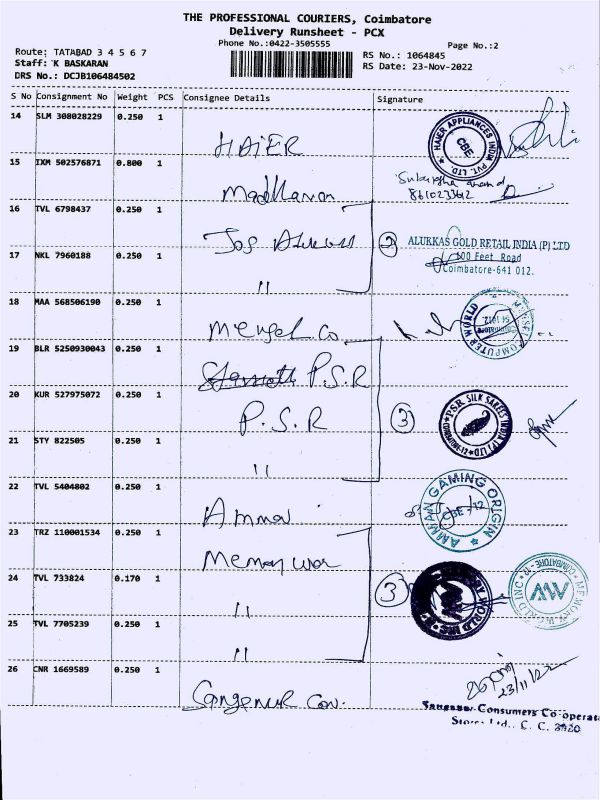 THE PROFESSIONAL COURIERS, Coimbatore
Delivery Runsheet - PCX
Phone No.:0422-3505555
Page No.:2
Route: TATABAD 3 4 5 6 7
Staff: K BASKARAN
DRS No.: DCJB106484502
RS No.: 1064845
RS Date: 23-Nov-2022
S No Consignment No Weight PCS Consignee Details Signature
14 SLM 308028229 0.250 1 HAiER
HAIER APPLIANCES INDIA PVT. LTD. CBE
15 IXM 502576871 0.800 1
16 TVL 6798437 0.250 1 Jos Alukkas
2 ALUKKAS GOLD RETAIL INDIA (P) LTD
100 Feet Road
Coimbatore-641 012.
17 NKL 7960188 0.250 1 "
18 MAA 568506190 0.250 1
COMPUTER WORLD
19 BLR 5250930043 0.250 1 P.S.R
20 KUR 527975072 0.250 1 P.S.R
3 P.S.R SILK SAREES INDIA (P) LTD COIMBATORE-12
21 STY 822505 0.250 1 "
22 TVL 5404802 0.250 1
GAMING ORIGIN
CBE-12
23 TRZ 110001534 0.250 1
24 TVL 733824 0.170 1 "
3 WORLD INC
MEMORY WORLD INC COIMBATORE - 12
25 TVL 7705239 0.250 1 "
26 CNR 1669589 0.250 1
23/11/22
Consumers Co-operat
Stores Ltd., C. C. 3920